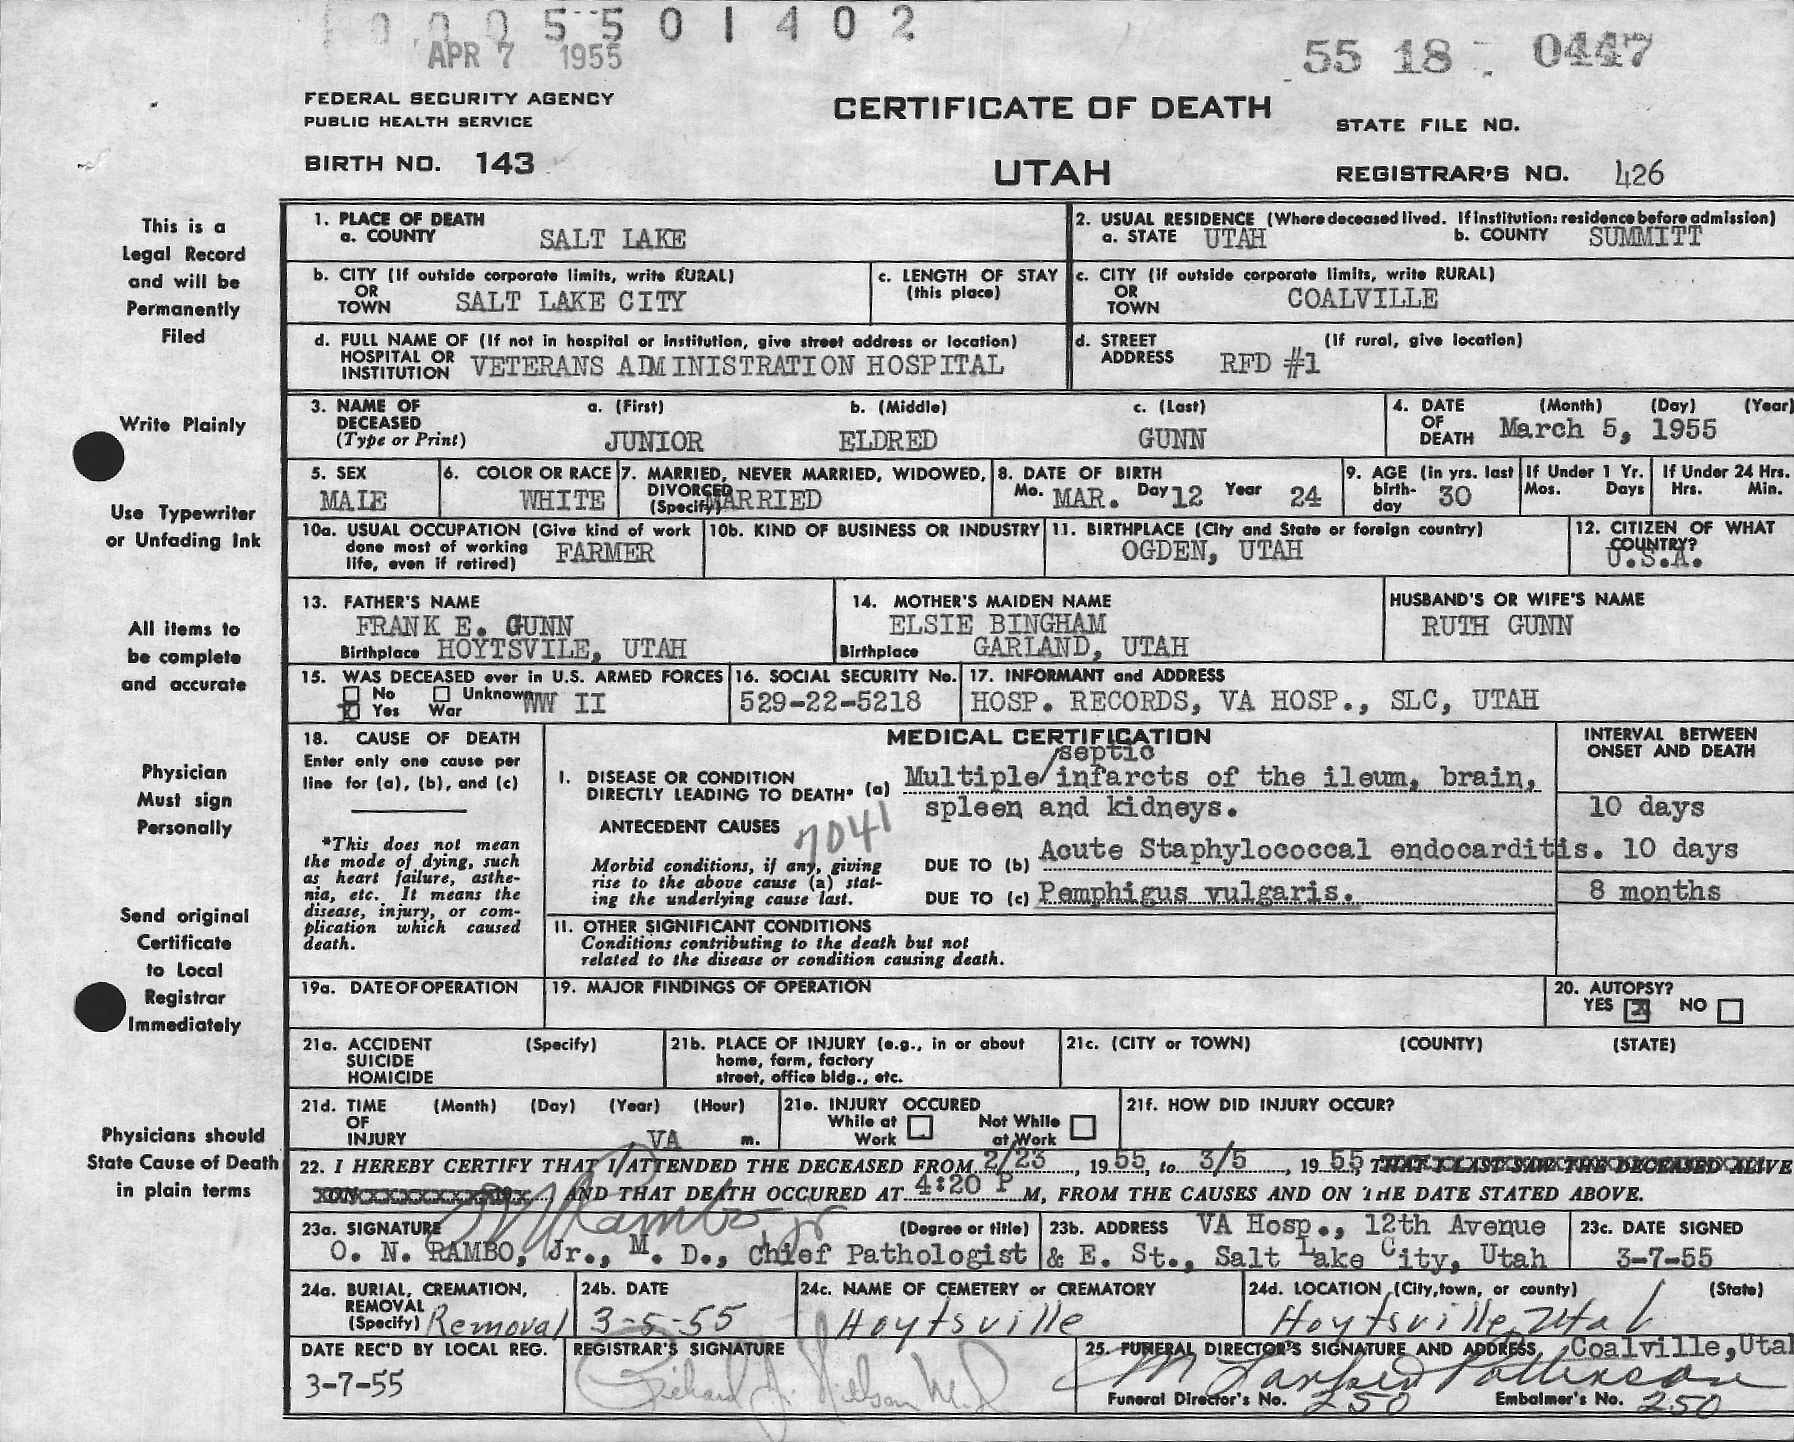 0005501402
APR 7 1955
55 18 0447
FEDERAL SECURITY AGENCY
PUBLIC HEALTH SERVICE
CERTIFICATE OF DEATH
STATE FILE NO.
BIRTH NO. 143
UTAH
REGISTRAR'S NO. 426
This is a
Legal Record
and will be
Permanently
Filed
Write Plainly
Use Typewriter
or Unfading Ink
All items to
be complete
and accurate
Physician
Must sign
Personally
Send original
Certificate
to Local
Registrar
Immediately
Physicians should
State Cause of Death
in plain terms
1. PLACE OF DEATH
a. COUNTY SALT LAKE
2. USUAL RESIDENCE (Where deceased lived. If institution: residence before admission)
a. STATE UTAH b. COUNTY SUMMITT
b. CITY (If outside corporate limits, write RURAL)
OR
TOWN SALT LAKE CITY
c. LENGTH OF STAY
(this place)
c. CITY (If outside corporate limits, write RURAL)
OR
TOWN COALVILLE
d. FULL NAME OF (If not in hospital or institution, give street address or location)
HOSPITAL OR
INSTITUTION VETERANS ADMINISTRATION HOSPITAL
d. STREET (If rural, give location)
ADDRESS RFD #1
3. NAME OF a. (First) b. (Middle) c. (Last)
DECEASED
(Type or Print) JUNIOR ELDRED GUNN
4. DATE (Month) (Day) (Year)
OF
DEATH March 5, 1955
5. SEX
MALE
6. COLOR OR RACE
WHITE
7. MARRIED, NEVER MARRIED, WIDOWED,
DIVORCED
(Specify) MARRIED
8. DATE OF BIRTH
Mo. MAR. Day 12 Year 24
9. AGE (in yrs. last
birth-
day 30
If Under 1 Yr.
Mos. Days
If Under 24 Hrs.
Hrs. Min.
10a. USUAL OCCUPATION (Give kind of work
done most of working
life, even if retired) FARMER
10b. KIND OF BUSINESS OR INDUSTRY
11. BIRTHPLACE (City and State or foreign country)
OGDEN, UTAH
12. CITIZEN OF WHAT
COUNTRY?
U.S.A.
13. FATHER'S NAME
FRANK E. GUNN
Birthplace HOYTSVILE, UTAH
14. MOTHER'S MAIDEN NAME
ELSIE BINGHAM
Birthplace GARLAND, UTAH
HUSBAND'S OR WIFE'S NAME
RUTH GUNN
15. WAS DECEASED ever in U.S. ARMED FORCES
No Unknown
x Yes War WW II
16. SOCIAL SECURITY No.
529-22-5218
17. INFORMANT and ADDRESS
HOSP. RECORDS, VA HOSP., SLC, UTAH
18. CAUSE OF DEATH
Enter only one cause per
line for (a), (b), and (c)
*This does not mean
the mode of dying, such
as heart failure, asthe-
nia, etc. It means the
disease, injury, or com-
plication which caused
death.
MEDICAL CERTIFICATION
INTERVAL BETWEEN
ONSET AND DEATH
septic
I. DISEASE OR CONDITION
DIRECTLY LEADING TO DEATH* (a) Multiple/infarcts of the ileum, brain,
spleen and kidneys. 10 days
ANTECEDENT CAUSES 7041
Morbid conditions, if any, giving
rise to the above cause (a) stat-
ing the underlying cause last.
DUE TO (b) Acute Staphylococcal endocarditis. 10 days
DUE TO (c) Pemphigus vulgaris. 8 months
II. OTHER SIGNIFICANT CONDITIONS
Conditions contributing to the death but not
related to the disease or condition causing death.
19a. DATE OF OPERATION
19. MAJOR FINDINGS OF OPERATION
20. AUTOPSY?
YES x NO
21a. ACCIDENT (Specify)
SUICIDE
HOMICIDE
21b. PLACE OF INJURY (e.g., in or about
home, farm, factory
street, office bldg., etc.
21c. (CITY or TOWN) (COUNTY) (STATE)
21d. TIME (Month) (Day) (Year) (Hour)
OF
INJURY VA m.
21e. INJURY OCCURED
While at Not While
Work at Work
21f. HOW DID INJURY OCCUR?
22. I HEREBY CERTIFY THAT I/ATTENDED THE DECEASED FROM 2/23, 1955, to 3/5, 1955 THAT I LAST SAW THE DECEASED ALIVE
ON 19 , AND THAT DEATH OCCURED AT 4:20 P M, FROM THE CAUSES AND ON THE DATE STATED ABOVE.
23a. SIGNATURE ON Rambo jr (Degree or title)
O. N. RAMBO, Jr., M. D., Chief Pathologist
23b. ADDRESS VA Hosp., 12th Avenue
& E. St., Salt Lake City, Utah
23c. DATE SIGNED
3-7-55
24a. BURIAL, CREMATION,
REMOVAL
(Specify) Removal
24b. DATE
3-5-55
24c. NAME OF CEMETERY or CREMATORY
Hoytsville
24d. LOCATION (City, town, or county) (State)
Hoytsville, Utah
DATE REC'D BY LOCAL REG.
3-7-55
REGISTRAR'S SIGNATURE
Richard J. Nielson M.D.
25. FUNERAL DIRECTOR'S SIGNATURE AND ADDRESS, Coalville, Utah
Funeral Director's No. 250 Embalmer's No. 250